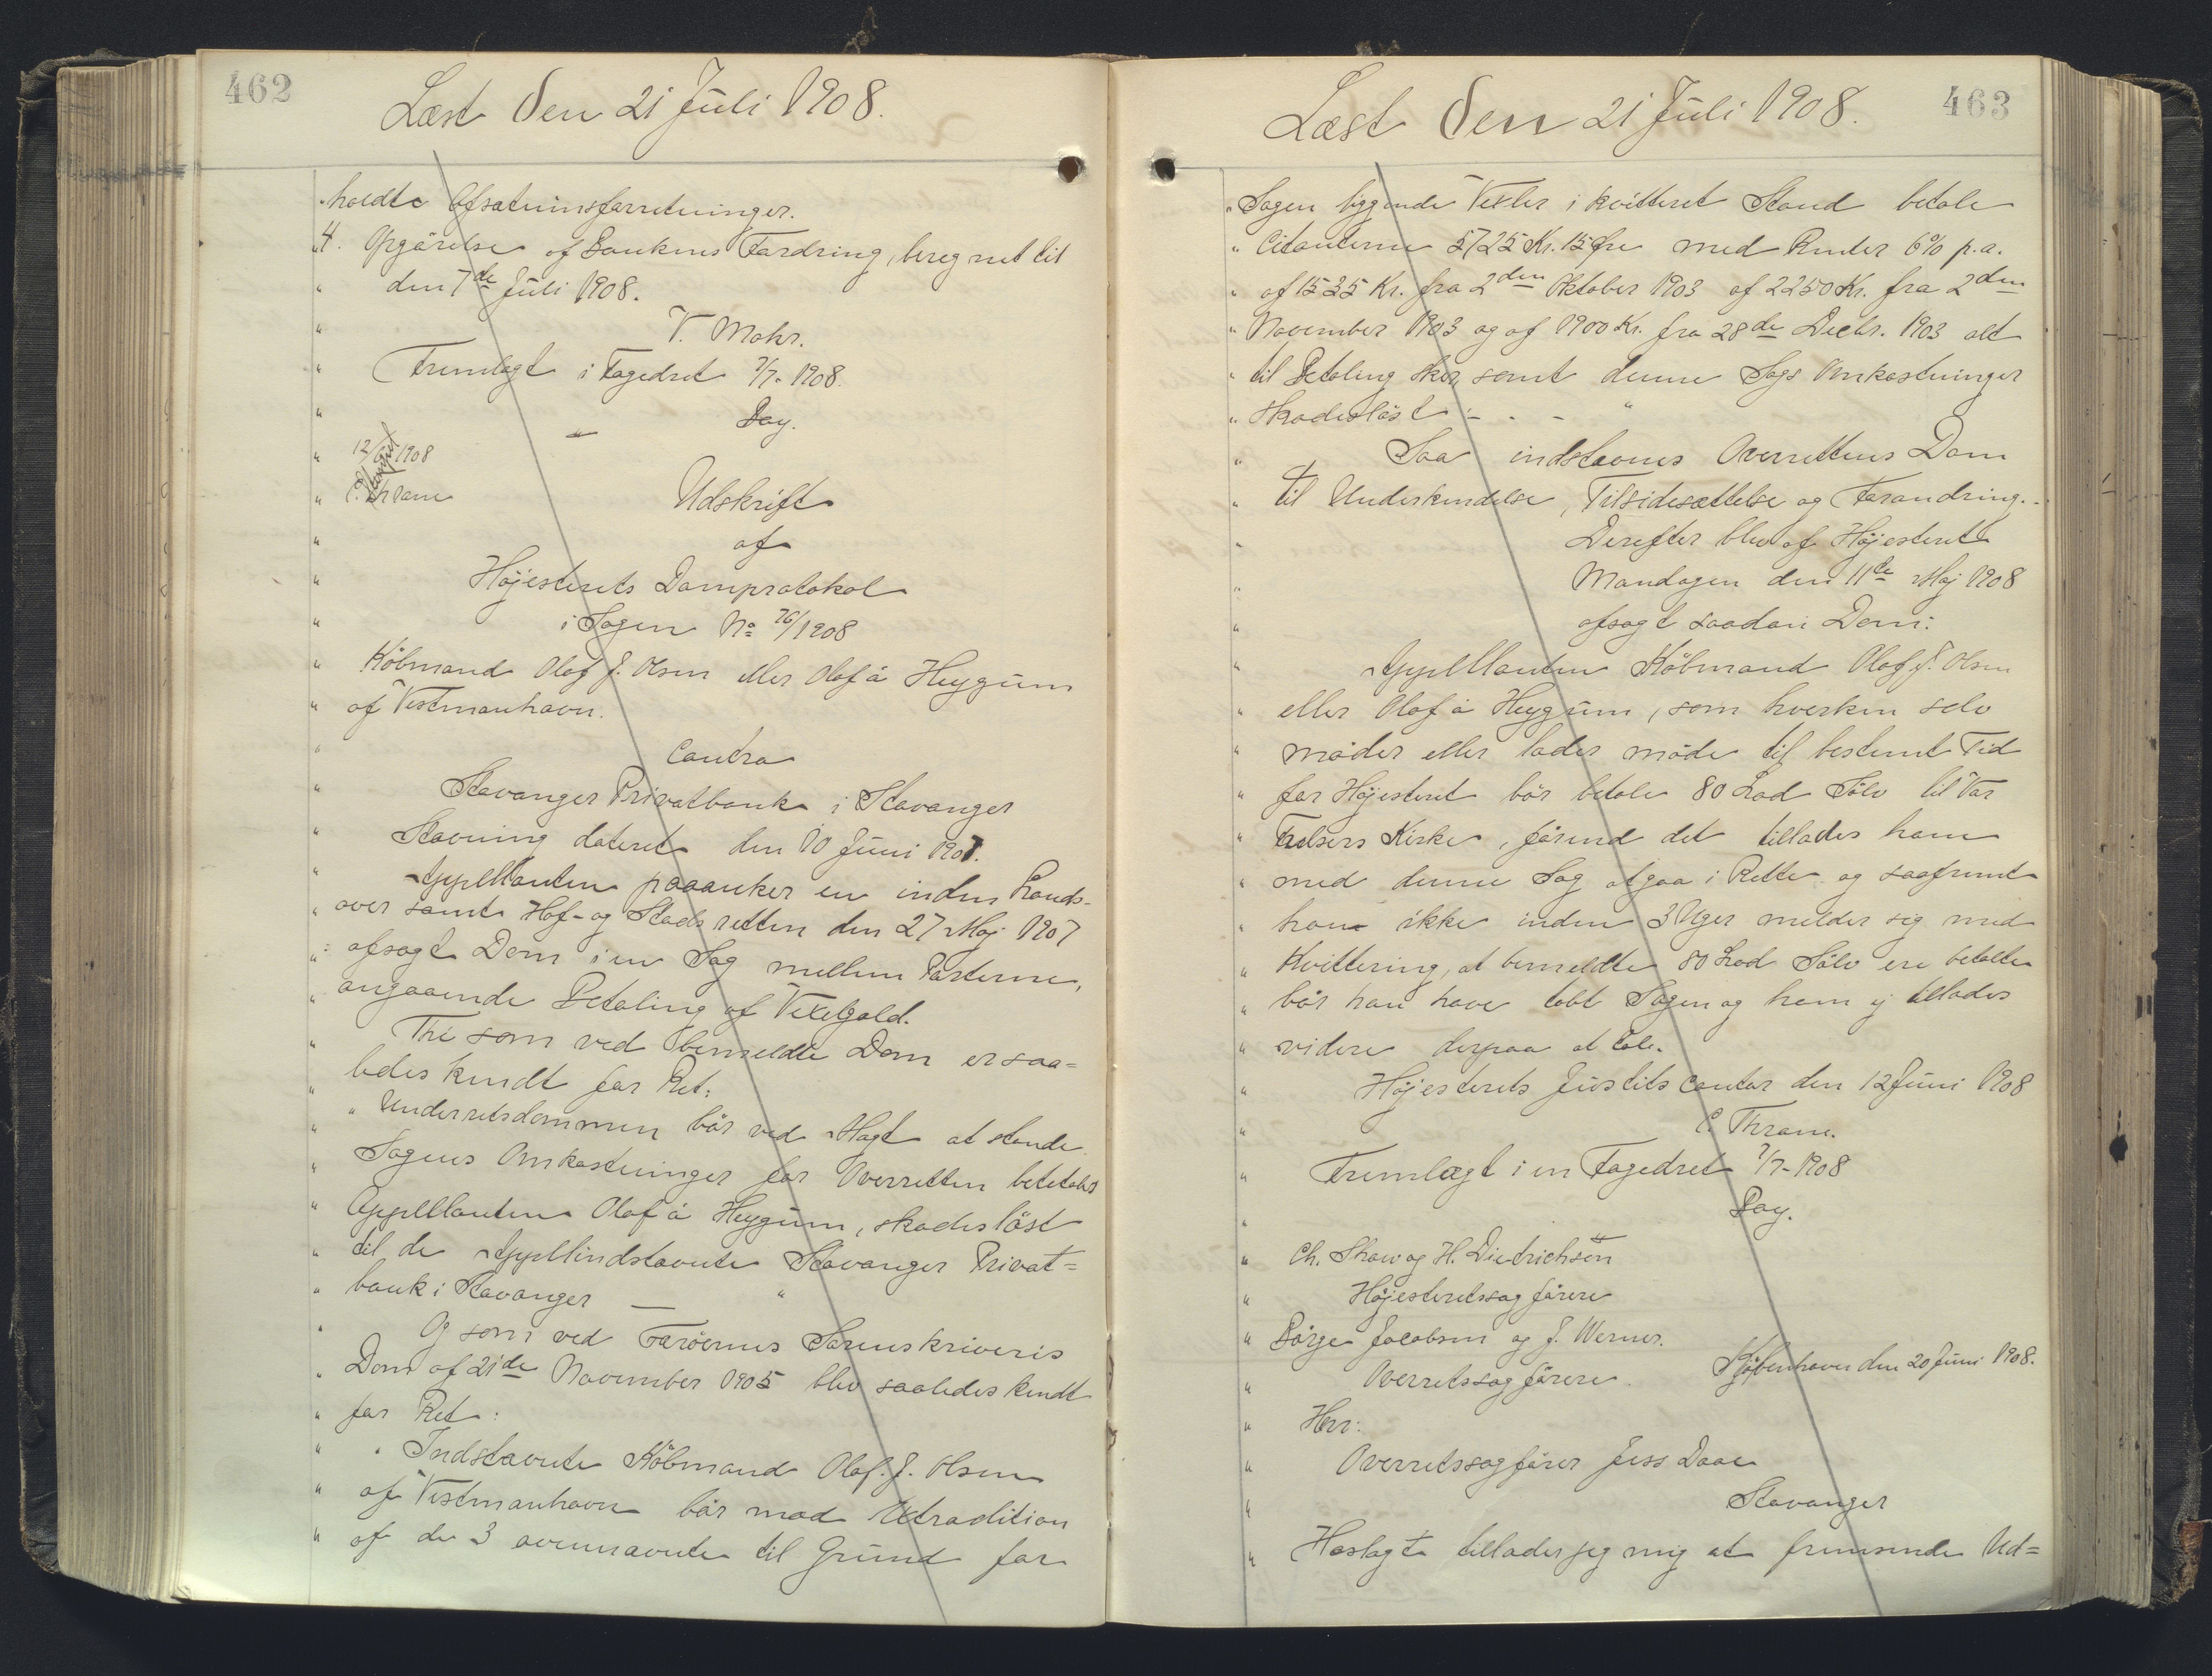 462
Læst den 21 Juli 1908.
holdte Afsætninsforretninger.
4. Opgörelse af Bankens Fordring, beregnet til
den 7de Juli 1908.
V. Mohr.
Fremlagt i Fogedret 7/7. 1908.
Bay.
12/6 1908
C. Thrane
Udskrift
af
Höjesterets Domprotokol
i Sagen No 76/1908
Köbmand Olaf J. Olsen eller Olaf á Heygum
af Vestmanhavn.
Contra
Stavanger Privatbank i Stavanger
Stævning dateret den 10 Juni 1907.
Appellanten paaanker en inden Lands-
over samt Hof- og Stadsretten den 27 Maj 1907
afsagt Dom i en Sag mellem Parterne,
angaaende Betaling af Vexelgæld.
Thi som ved bemeldte Dom er saa=
ledes kendt for Ret:
"Underretsdommen bör ved Magt at stande.
Sagens Omkostninger for Overretten betetales
Appellanten Olaf á Heygum, skadeslöst
til de Appelindstævnte Stavanger Privat=
bank i Stavanger — "
Og som ved Færöernes Sorenskriveris
Dom af 21de November 1905 blev saaledes kendt
for Ret:
"Indstævnte Köbmand Olaf. J. Olsen
af Vestmanhavn bör mod Extradition
af de 3 ovennævnte til Grund for
463
Læst den 21 Juli 1908.
Sagen liggende Vexler i kvitteret Stand betale
Citanterne 5725 Kr. 15 Öre med Renter 6% p.a.
af 1535 Kr. fra 2den Oktober 1903 af 2250 Kr. fra 2den
November 1903 og af 1900 Kr. fra 28de Decbr. 1903 alt
til Betaling sker, samt denne Sags Omkostninger
skadeslöst :- . - "
Saa indstævnes Overrettens Dom
til Underkendelse, Tilsidesættelse og Forandring.-
Derefter blev af Höjesteret
Mandagen den 11te Maj 1908
afsagt saadan Dom:
Appellanten Köbmand Olaf J. Olsen
eller Olaf á Heygum, som hverken selv
möder eller lader möde til bestemt Tid
for Höjesteret bör betale 80 Lod Sölv til Vor
Frelsers Kirke, förend det tillades ham
med denne Sag at gaa i Rette og saafremt
han ikke inden 3 Uger melder sig med
Kvittering, at bemeldte 80 Lod Sölv ere betalte
bör han have tabt Sagen og ham ej tillades
videre derpaa at tale.
Höjesterets Justitscontor den 12 Juni 1908
C. Thrane.
Fremlagt i en Fogedret 7/7-1908
Bay.
Ch. Shaw og H. Diedrichsen
Höjesteretssagförere
Börge Jacobsen og J. Werner.
Overretssagförere.
Kjöbenhavn den 20 Juni 1908.
Herr:
Overretssagförer Jess Daae
Stavanger
Hoslagt tillader jeg mig at fremsende Ud=